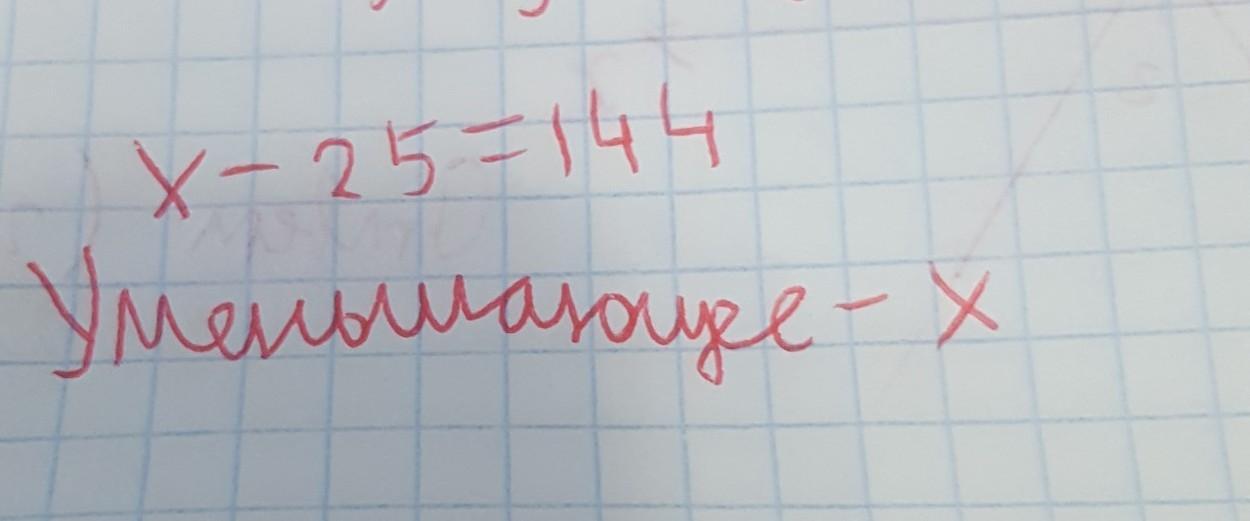 x - 25 = 144
Уменьшающее - x